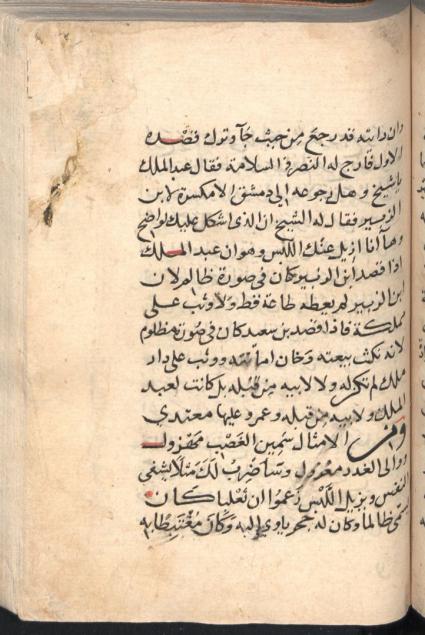 وان رايته قد رجع من حيث جاء وترك قصده
الاول فارج له النصر في السلامة فقال عبد الملك
يا شيخ وهل رجوعه الى دمشق الا مكسرة لابن
الزبير فقال له الشيخ ان الذي اشكل عليك لواضح
وها انا ازيل عنك اللبس وهو ان عبد الملك
اذا قصد ابن الزبير كان في صورة ظالم لان
ابن الزبير لم يعطه طاعة قط ولا وثب على
مملكة فاذا قصد بن سعيد كان في صورة مظلوم
لانه نكث بيعته وخان امانته ووثب على دار
ملك لم تكن له ولا لابيه من قبله بل كانت لعبد
الملك ولابيه من قبله وعمرو عليها معتدي
وفي الامثال سمين الغصب مهزول
ووالي الغدر معزول وساضرب لك مثلا يشفي
النفس ويزيل اللبس زعموا ان ثعلبا كان
يسمى ظالما وكان له جحر ياوي اليه وكان مغتبطا به